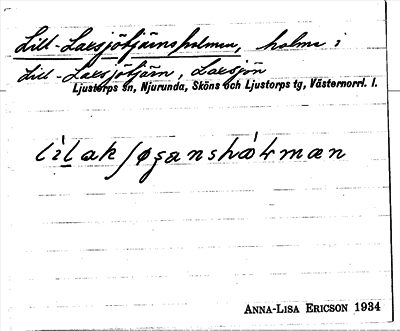 Lill-Laxsjötjärnsholmen, holme i
Lill-Laxsjötjärn, Laxsjön
Ljustorps sn, Njurunda, Sköns och Ljustorps tg, Västernorrl. l.
ANNA-LISA ERICSON 1934